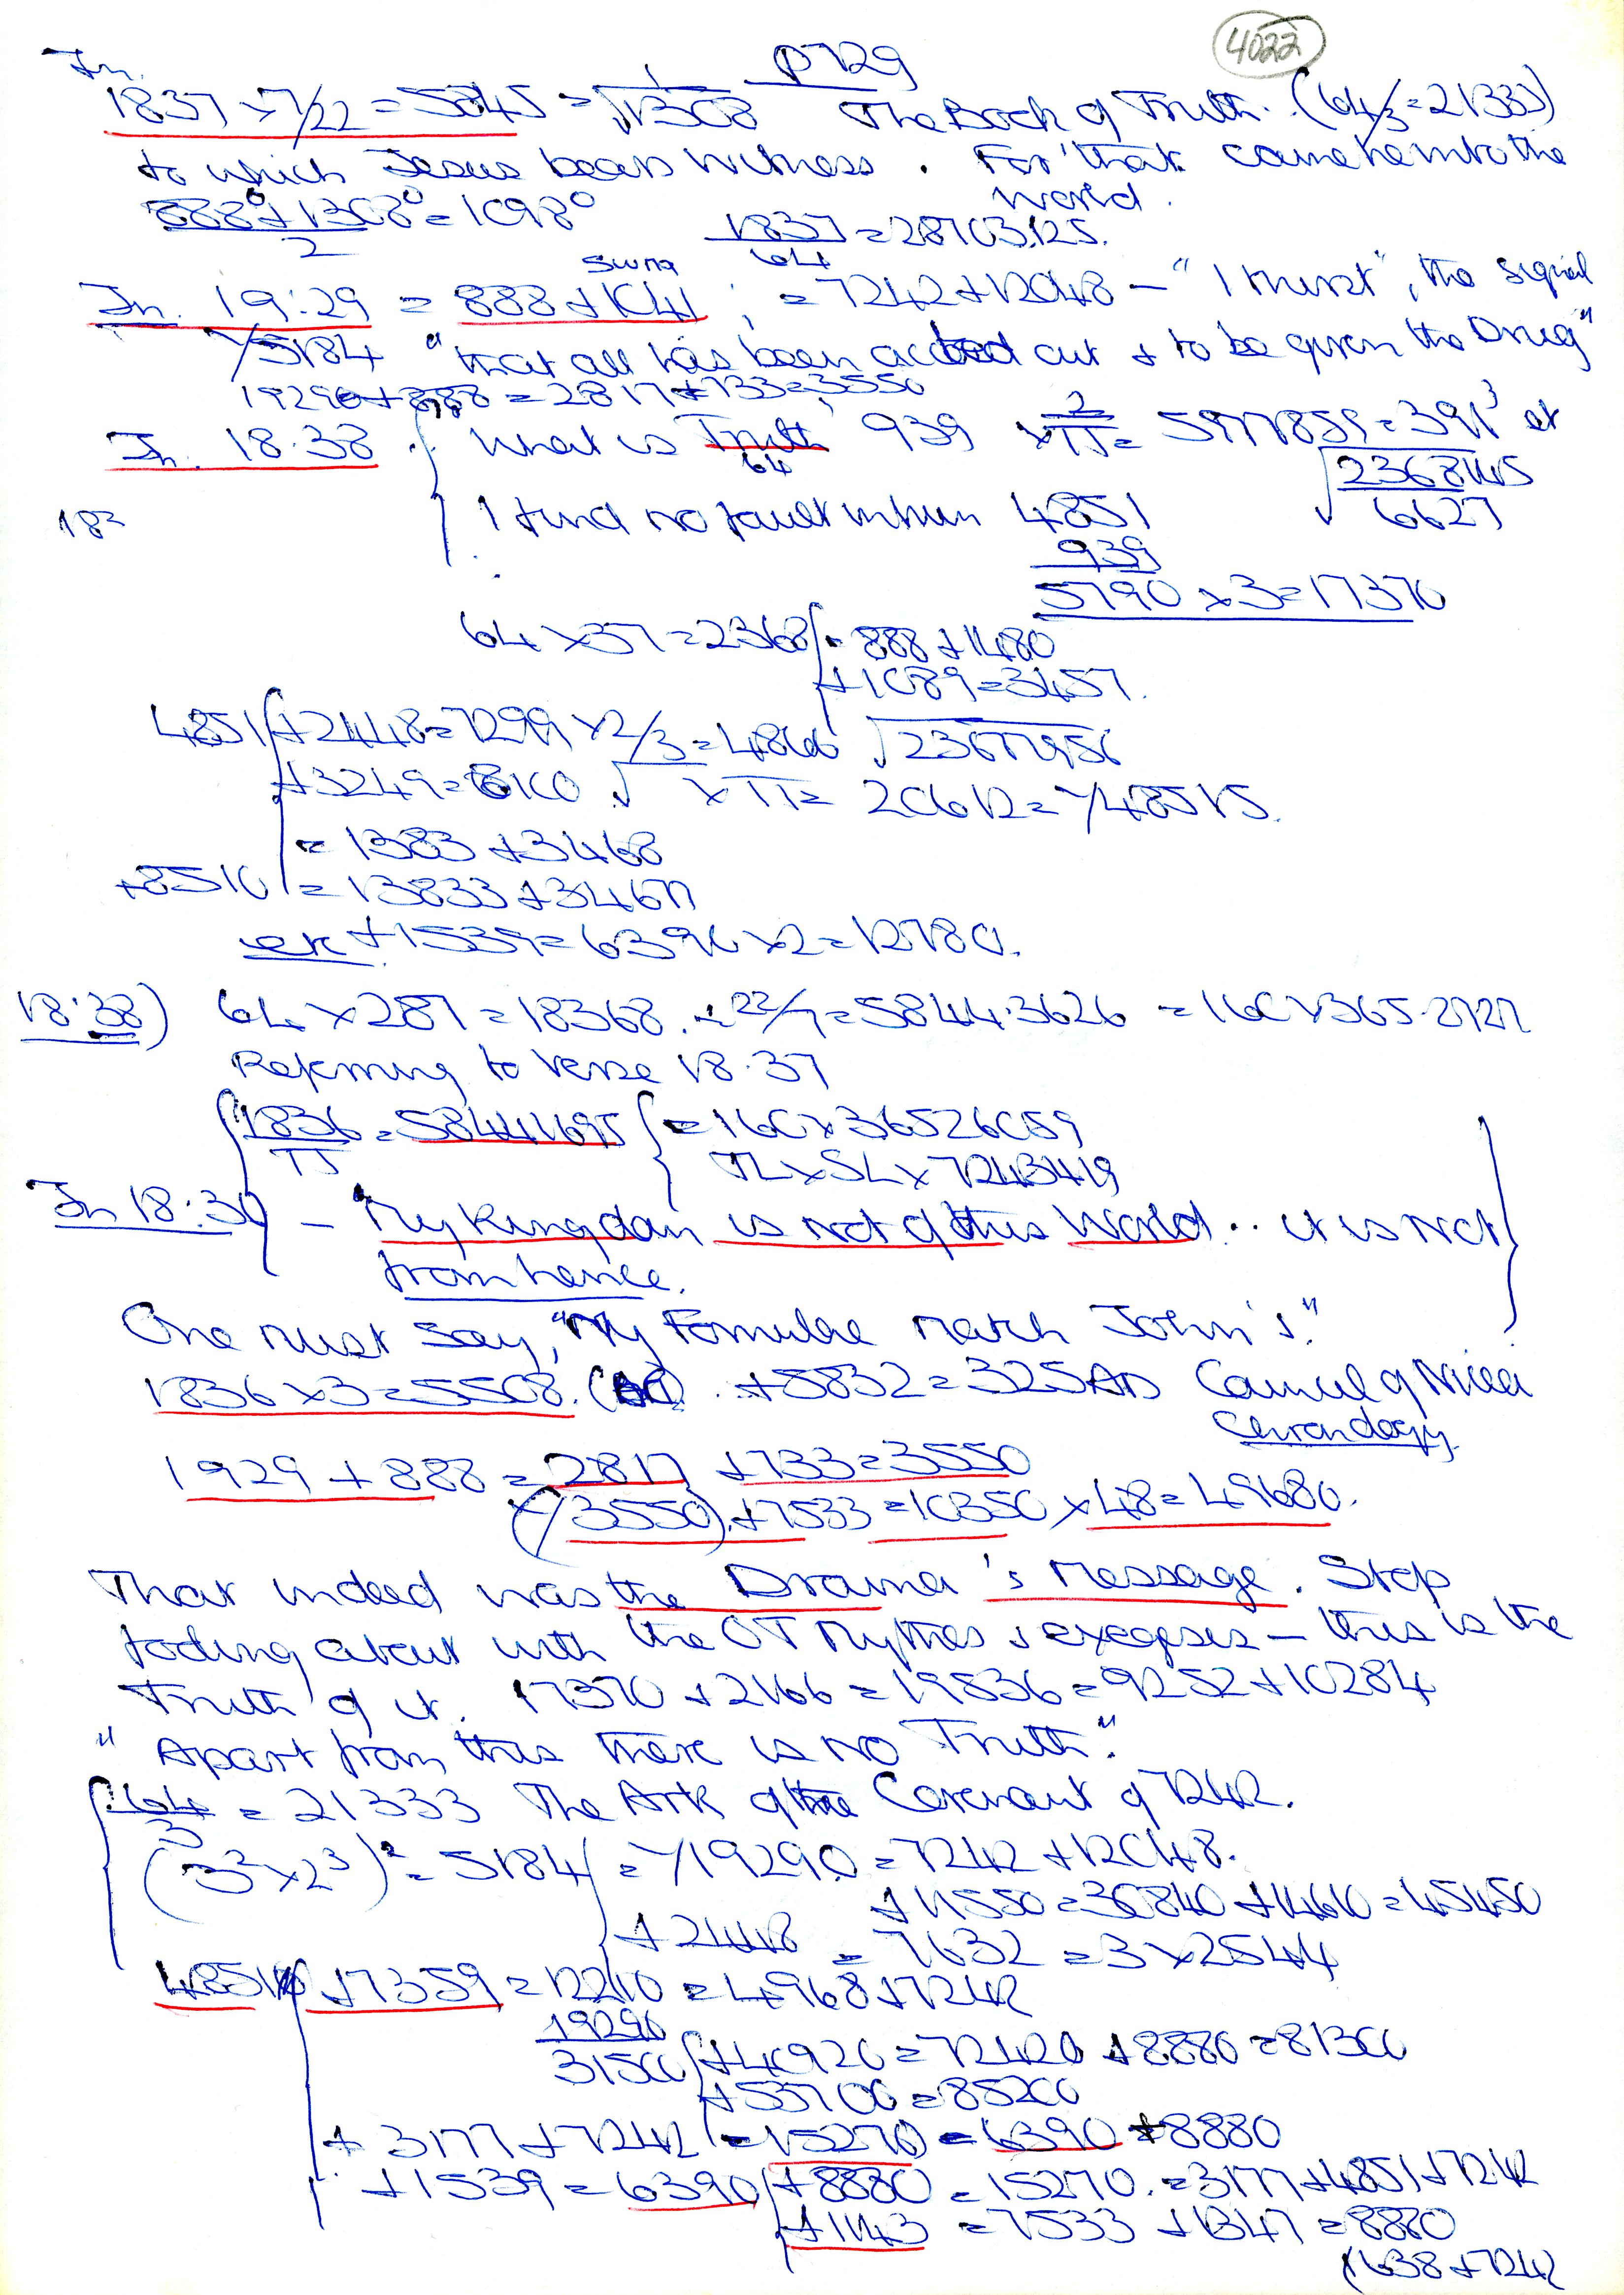 P729
4022
Jn.
1837 x 7/22 = 5845 = 1/√1308 The Book of Truth. (64/3 = 21333)
to which Jesus bears witness. For that came he into the
world.
888° + 1308° = 1098°
2
1837 = 28703.125.
64
Swing
Jn. 19:29 = 888 + 1041; = 7242 + 12048 - "I thirst", the signal
/5184 "that all has been acted out & to be given the Drug"
19290 + 888 = 2817 + 733 = 3550
Jn. 18:38 "What is Truth" 939 x 2/π = 5977859 = 391³ at
64
√236811415
6627
18²
I find no fault in him 4851
939
5790 x 3 = 17370
64 x 37 = 2368 = 888 + 1480
+ 1089 = 3457.
4851 + 2448 = 7299 x 2/3 = 4866 √23677956
+ 3249 = 8100 √ x π = 20612 = /48515.
= 1383 + 3468
+8510 = 13833 + 34677
etc + 1539 = 6390 x 2 = 12780.
18:38) 64 x 287 = 18368. ÷ 22/7 = 5844.3626 = 160 x 365.2727
Referring to verse 18.37
1836 = 58441695 = 160 x 36526059
π
JL x SL x 7243419
Jn 18:36 - "My Kingdom is not of this World .. it is not
from hence.
One must say, "My Formulae match John's."
1836 x 3 = 5508. + 5832 = 325 AD Council of Nicea
Chronology.
1929 + 888 = 2817 + 733 = 3550
(/3550) + 7533 = 10350 x 48 = 49680.
That indeed was the Drama's Message. Stop
fooling about with the OT Mythes & exegeses - this is the
Truth of it. 17370 + 2166 = 19536 = 9252 + 10284
"Apart from this there is no Truth."
64 = 21333 The Ark of the Covenant of 7242.
3
(3³ x 2³)² = 5184 = /19290 = 7242 + 12048.
+ 11550 = 30840 + 14610 = 45450
+ 2448 = 7632 = 3 x 2544
4851 + 7359 = 12210 = 4968 + 7242
19290
31500 + 40920 = 72420 + 8880 = 81300
+ 53700 = 85200
+ 3177 + 7242 = 15270 = 6390 + 8880
+ 1539 = 6390 + 8880 = 15270. = 3177 + 4851 + 7242
+ 1143 = 7533 + 1347 = 8880
(1638 + 7242